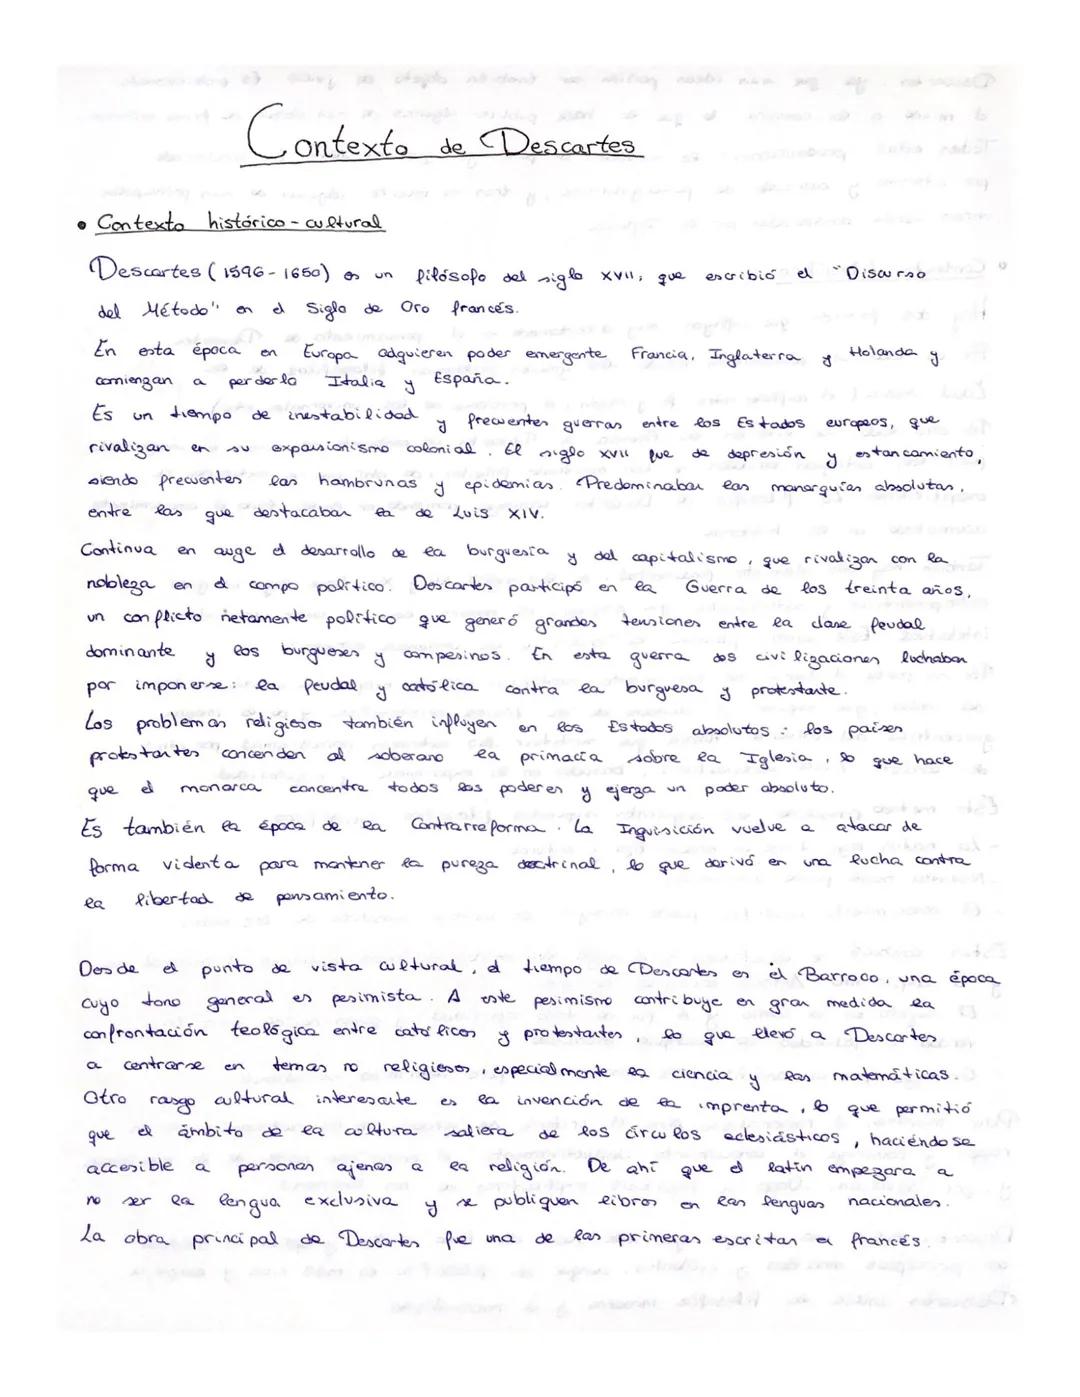 Contexto de Descartes
• Contexto histórico - cultural
Descartes (1596 - 1650) es un filósofo del siglo XVII, que escribió el "Discurso
del Método" en el Siglo de Oro francés.
En esta época en Europa adquieren poder emergente Francia, Inglaterra y Holanda y
comienzan a perderlo Italia y España.
Es un tiempo de inestabilidad y frecuentes guerras entre los Estados europeos, que
rivalizan en su expansionismo colonial. El siglo XVII fue de depresión y estancamiento,
siendo frecuentes las hambrunas y epidemias. Predominaban las monarquías absolutas,
entre las que destacaban la de Luis XIV.
Continua en auge el desarrollo de la burguesía y del capitalismo, que rivalizan con la
nobleza en el campo político. Descartes participó en la Guerra de los treinta años,
un conflicto netamente político que generó grandes tensiones entre la clase feudal
dominante y los burgueses y campesinos. En esta guerra dos civilizaciones luchaban
por imponerse: la feudal y católica contra la burguesa y protestante.
Los problemas religiosos también influyen en los Estados absolutos: los países
protestantes concenden al soberano la primacía sobre la Iglesia, lo que hace
que el monarca concentre todos los poderes y ejerza un poder absoluto.
Es también la época de la Contrarreforma. La Inquisición vuelve a atacar de
forma violenta para mantener la pureza doctrinal, lo que derivó en una lucha contra
la libertad de pensamiento.
Desde el punto de vista cultural, el tiempo de Descartes es el Barroco, una época
cuyo tono general es pesimista. A este pesimismo contribuye en gran medida la
confrontación teológica entre católicos y protestantes, lo que llevó a Descartes
a centrarse en temas no religiosos, especialmente la ciencia y las matemáticas.
Otro rasgo cultural interesante es la invención de la imprenta, lo que permitió
que el ámbito de la cultura saliera de los círculos eclesiásticos, haciéndose
accesible a personas ajenas a la religión. De ahí que el latín empezara a
no ser la lengua exclusiva y se publiquen libros en las lenguas nacionales.
La obra principal de Descartes fue una de las primeras escritas en francés.